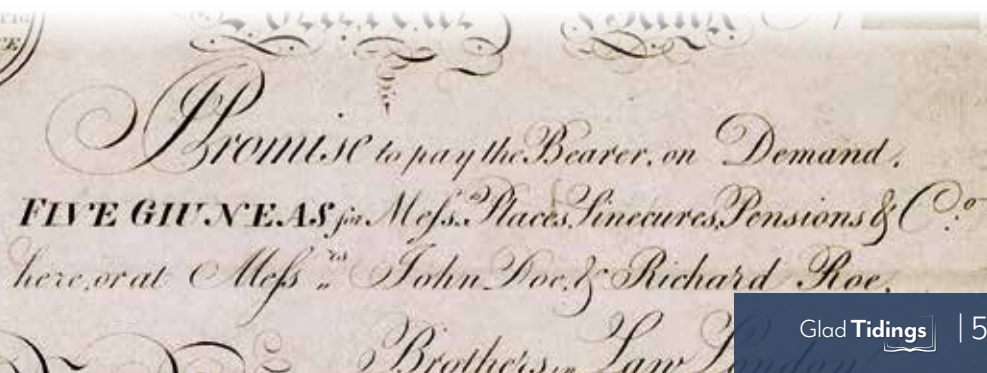 Promise to pay the Bearer, on Demand,
FIVE GIUNEAS for Meſs.rs Places, Sinecures, Pensions & C.o
here, or at Meſs.rs John Doe, & Richard Roe,
Brothers in Law London
Glad Tidings | 5